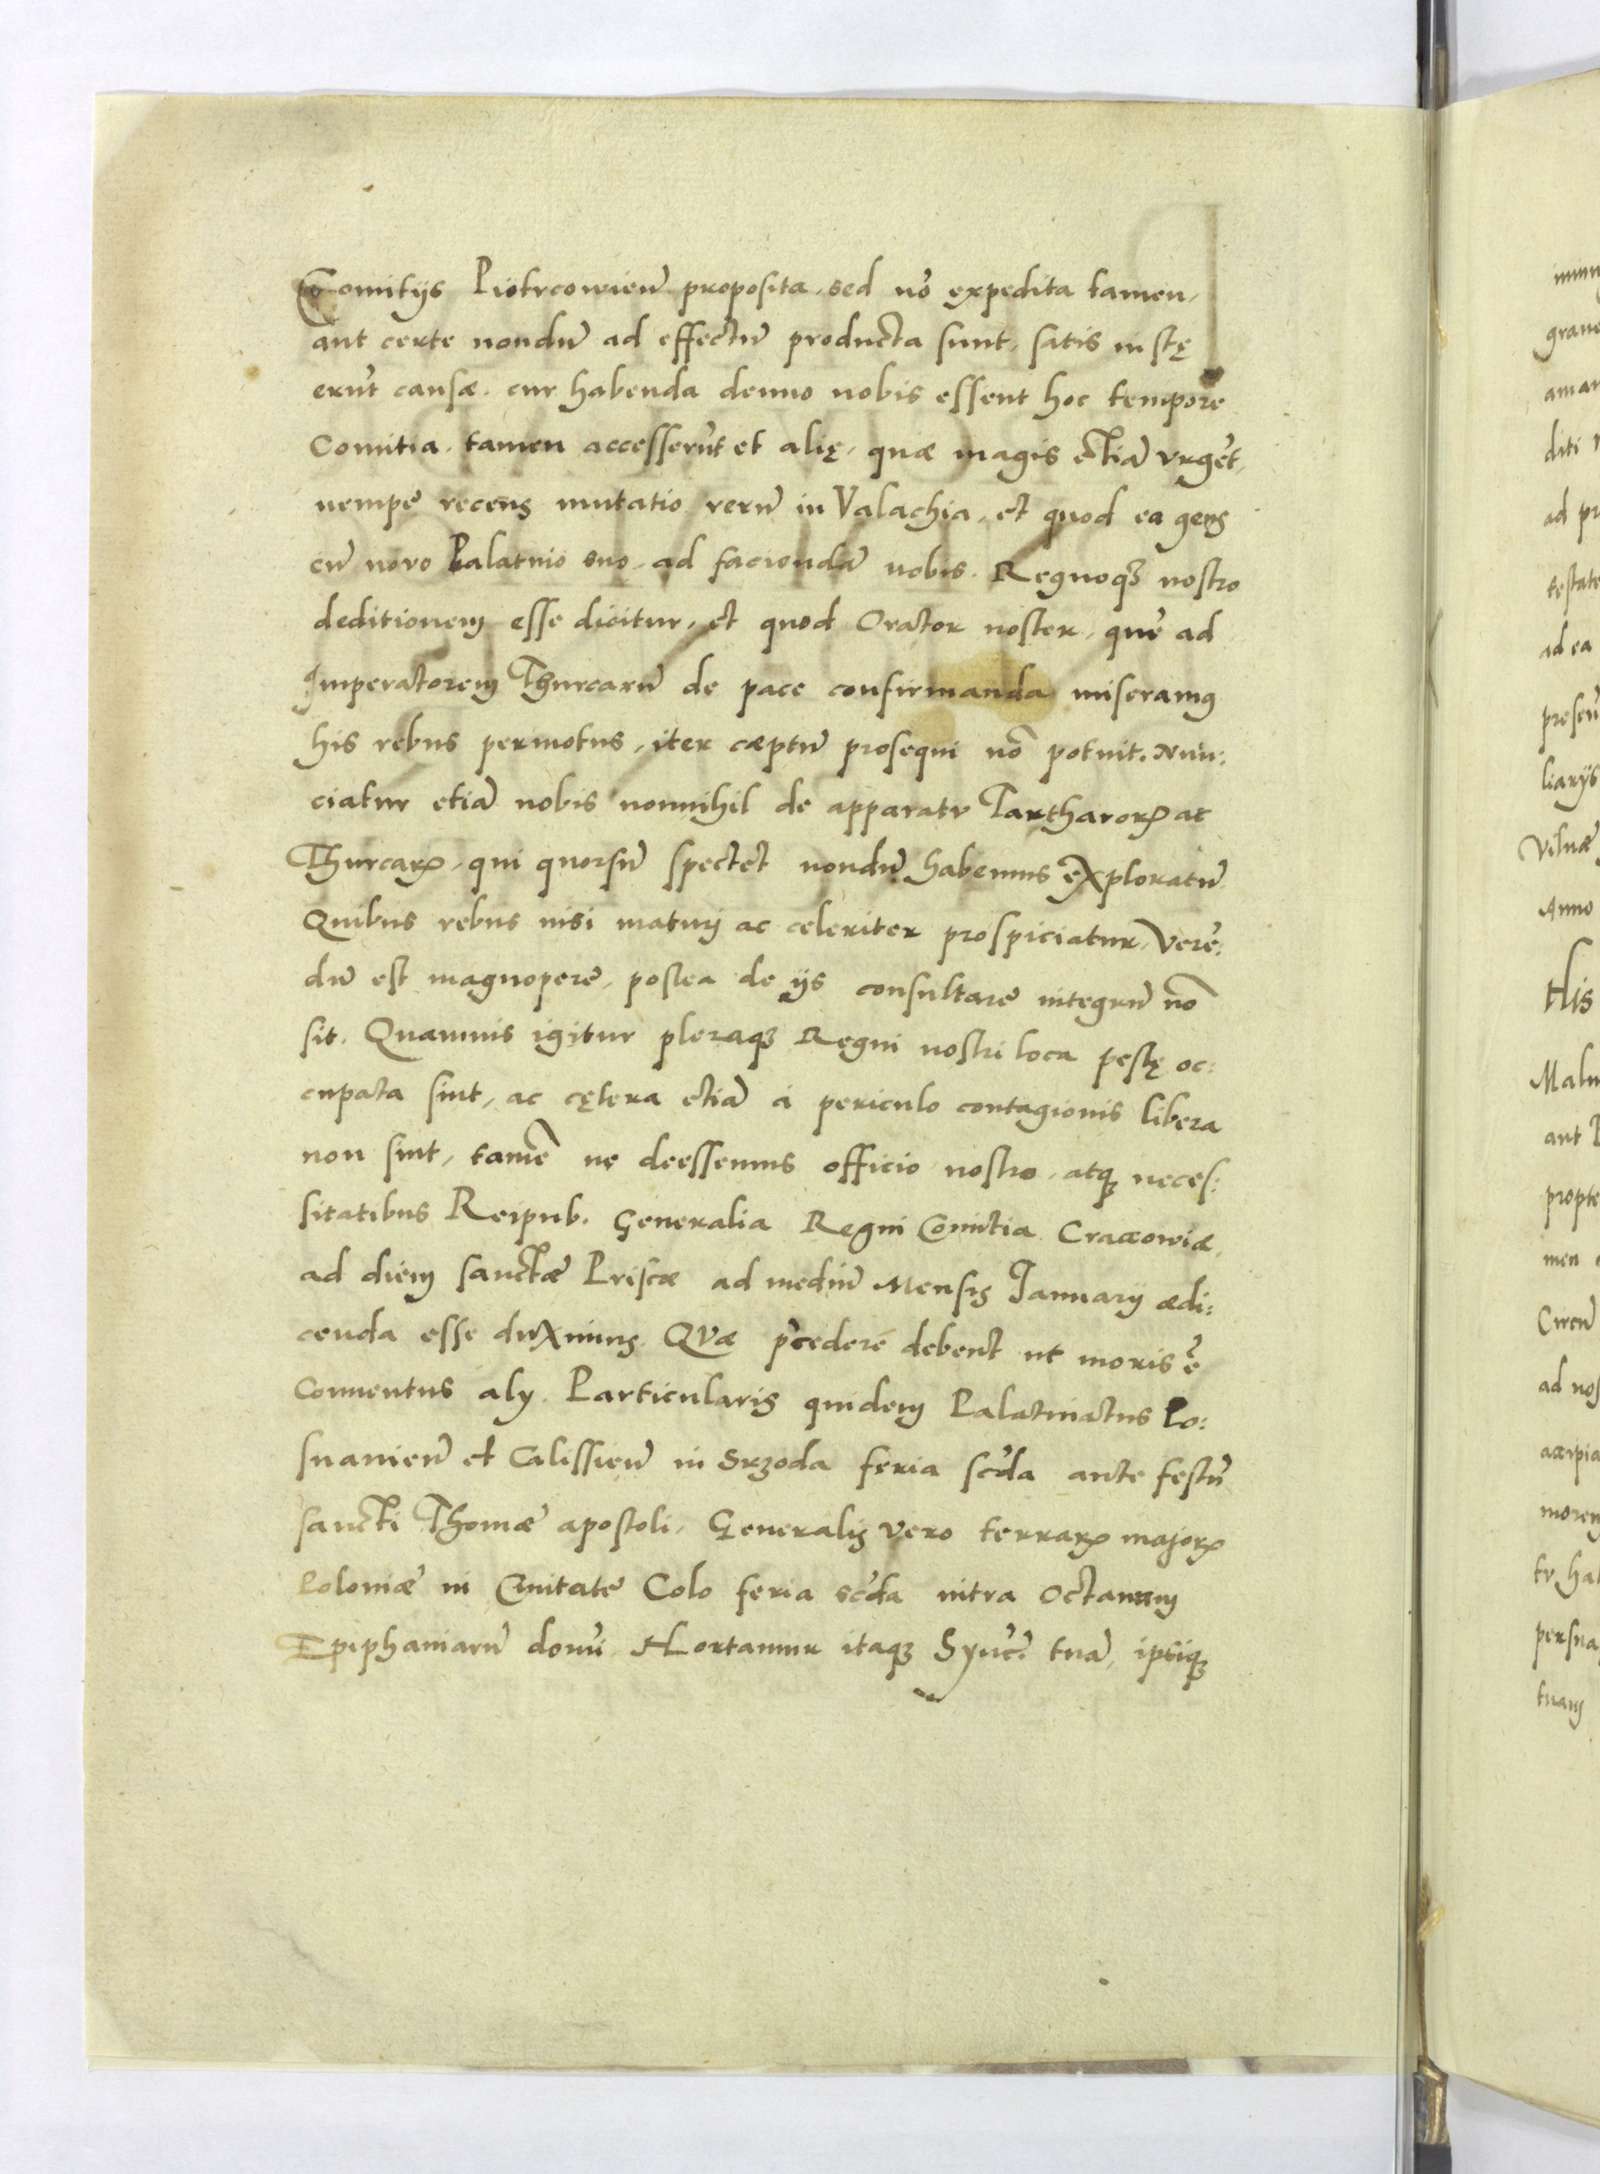 Comitijs Piotrcowień proposita, sed nō expedita tamen,
aut certe nondū ad effectū producta sunt, satis iustę
erāt causæ, cur habenda denuo nobis essent hoc tempore
Comitia, tamen accesserūt et alię, quæ magis etiā vrgēt,
nempe recens mutatio rerū in Valachia, et quod ea gens
cū novo Palatino suo, ad faciendā nobis, Regnoq₃ nostro
deditionem esse dicitur, et quod Orator noster, quē ad
Imperatorem Thurcarū de pace confirmanda miseramus
his rebus permotus, iter cæptū prosequi nō potuit. Nun:
ciatur etiā nobis nonnihil de apparatu Tartharoꝝ ac
Thurcaꝝ, qui quorsū spectet nondū habemus exploratū
Quibus rebus nisi mature ac celeriter prospiciatur, verē:
dū est magnopere, postea de ijs consultare integrū nō
sit. Quamuis igitur pleraq₃ Regni nostri loca pestę oc:
cupata sint, ac cętera etiā à periculo contagionis libera
non sint, tamē ne deessemus officio nostro, atq₃ neces:
sitatibus Reipub. Generalia Regni Comitia Cracowiæ,
ad diem sanctæ Priscæ ad mediū Mensis Januarij ædi:
cenda esse duximus. Quæ p̄cedere debent ut moris ē
Conuentus alij. Particularis quidem Palatinatus Po:
snanień et Calissień in Srzoda feria scd̄a ante festū
sancti Thomæ apostoli, Generalis vero terraꝝ majoꝝ
Poloniæ in Ciuitate Colo feria scd̄a intra Octauam
Epiphaniarū domī. Hortamur itaq₃ Syncē. tuā, ipsiq₃
his
Malu
propte
men
Circū
ad nos
Anno
Vilnæ
liarijs
ad ea
testate
ad pr
diti
graue